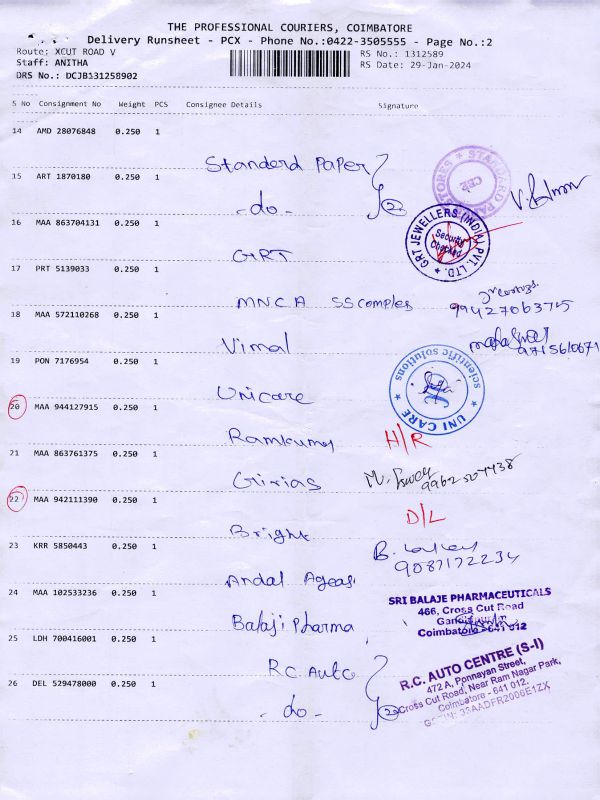 THE PROFESSIONAL COURIERS, COIMBATORE
Delivery Runsheet - PCX - Phone No.:0422-3505555 - Page No.:2
Route: XCUT ROAD V
RS No.: 1312589
Staff: ANITHA
RS Date: 29-Jan-2024
DRS No.: DCJB131258902
S No Consignment No Weight PCS Consignee Details Signature
14 AMD 28076848 0.250 1
Standerd Paper
15 ART 1870180 0.250 1
-do-
2
STANDARD PA STORES CBE
16 MAA 863704131 0.250 1
GRT
GRT JEWELLERS (INDIA) PVT. LTD. Security Checked
17 PRT 5139033 0.250 1
MNCA SS complex
99427063745
18 MAA 572110268 0.250 1
Vimal
9715610671
19 PON 7176954 0.250 1
Unicare
scientific solutions UNI CARE
20 MAA 944127915 0.250 1
Ramkumar H/R
21 MAA 863761375 0.250 1
Girias
22 MAA 942111390 0.250 1
Bright D/L
23 KRR 5850443 0.250 1
Andal Ageas
9087172234
24 MAA 102533236 0.250 1
Balaji Pharma
SRI BALAJE PHARMACEUTICALS
466, Cross Cut Road
Coimbatore - 641 012
25 LDH 700416001 0.250 1
R.C. Auto
26 DEL 529478000 0.250 1
-do-
2
R.C. AUTO CENTRE (S-I)
472 A, Ponnayan Street,
Cross Cut Road, Near Ram Nagar Park,
Coimbatore - 641 012.
GSTIN: 33AADFR2006E1ZX